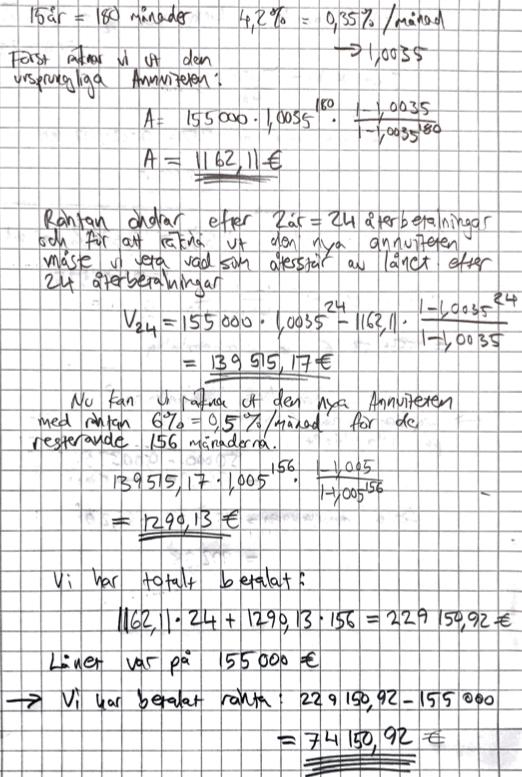 15 år = 180 månader 4,2% = 0,35% /månad
→ 1,0035
Först räknar vi ut den
ursprungliga Annuiteten:
A = 155000 · 1,0035^180 · (1-1,0035)/(1-1,0035^180)
A = 1162,11 €
Räntan ändrar efter 2år = 24 återbetalningar
och för att räkna ut den nya annuiteten
måste vi veta vad som återstår av lånet efter
24 återbetalningar
V24 = 155 000 · 1,0035^24 - 1162,11 · (1-1,0035^24)/(1-1,0035)
= 139 515,17 €
Nu kan vi räkna ut den nya Annuiteten
med räntan 6% = 0,5%/månad för de
resterande 156 månaderna.
139515,17 · 1,005^156 · (1-1,005)/(1-1,005^156)
= 1290,13 €
Vi har totalt betalat:
1162,11 · 24 + 1290,13 · 156 = 229 150,92 €
Lånet var på 155 000 €
→ Vi har betalat ränta: 229 150,92 - 155 000
= 74 150,92 €